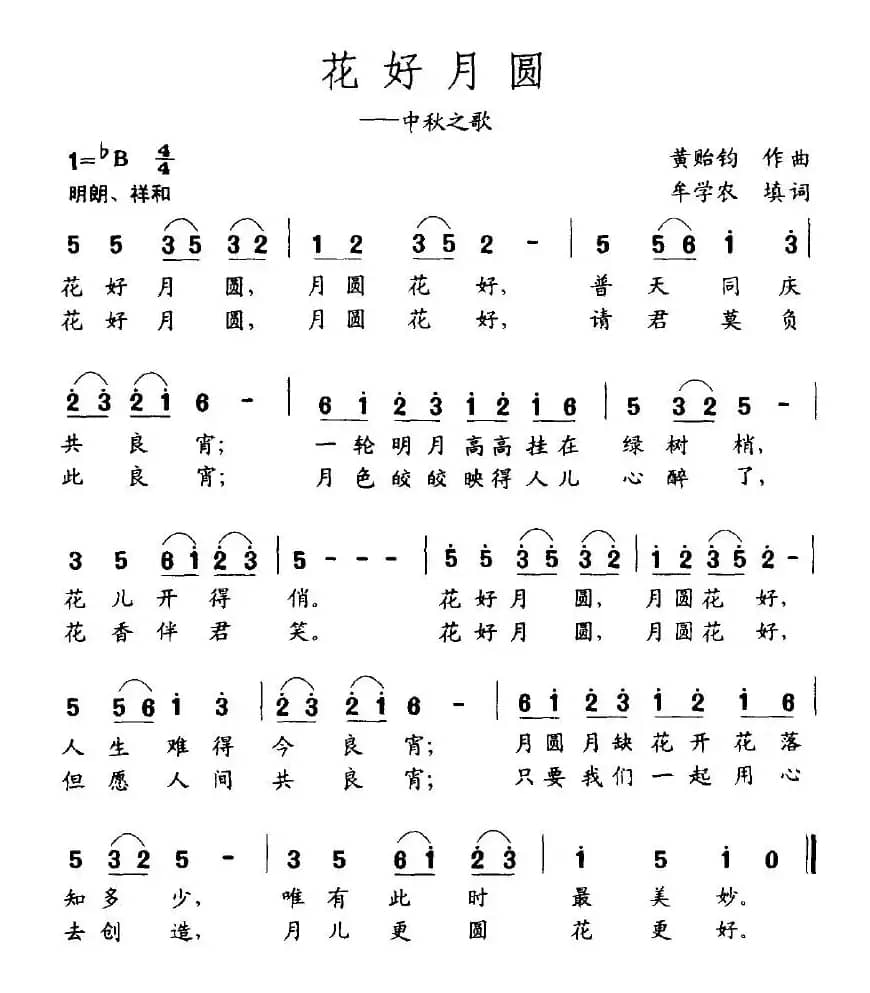 花好月圆
——中秋之歌
1=♭B 4/4 黄贻钧 作曲
明朗、祥和 牟学农 填词
5 5 3 5 3 2 | 1 2 3 5 2 - | 5 5 6 1̇ 3̇ |
花好月圆，月圆花好，普天同庆
花好月圆，月圆花好，请君莫负
2̇ 3̇ 2̇ 1̇ 6 - | 6 1̇ 2̇ 3̇ 1̇ 2̇ 1̇ 6 | 5 3 2 5 - |
共良宵；一轮明月高高挂在绿树梢，
此良宵；月色皎皎映得人儿心醉了，
3 5 6 1̇ 2̇ 3̇ | 5 - - - | 5̇ 5̇ 3̇ 5̇ 3̇ 2̇ | 1̇ 2̇ 3̇ 5̇ 2̇ - |
花儿开得俏。花好月圆，月圆花好，
花香伴君笑。花好月圆，月圆花好，
5 5 6 1̇ 3̇ | 2̇ 3̇ 2̇ 1̇ 6 - | 6 1̇ 2̇ 3̇ 1̇ 2̇ 1̇ 6 |
人生难得今良宵；月圆月缺花开花落
但愿人间共良宵；只要我们一起用心
5 3 2 5 - | 3 5 6 1̇ 2̇ 3̇ | 1̇ 5 1̇ 0 ‖
知多少，唯有此时最美妙。
去创造，月儿更圆花更好。